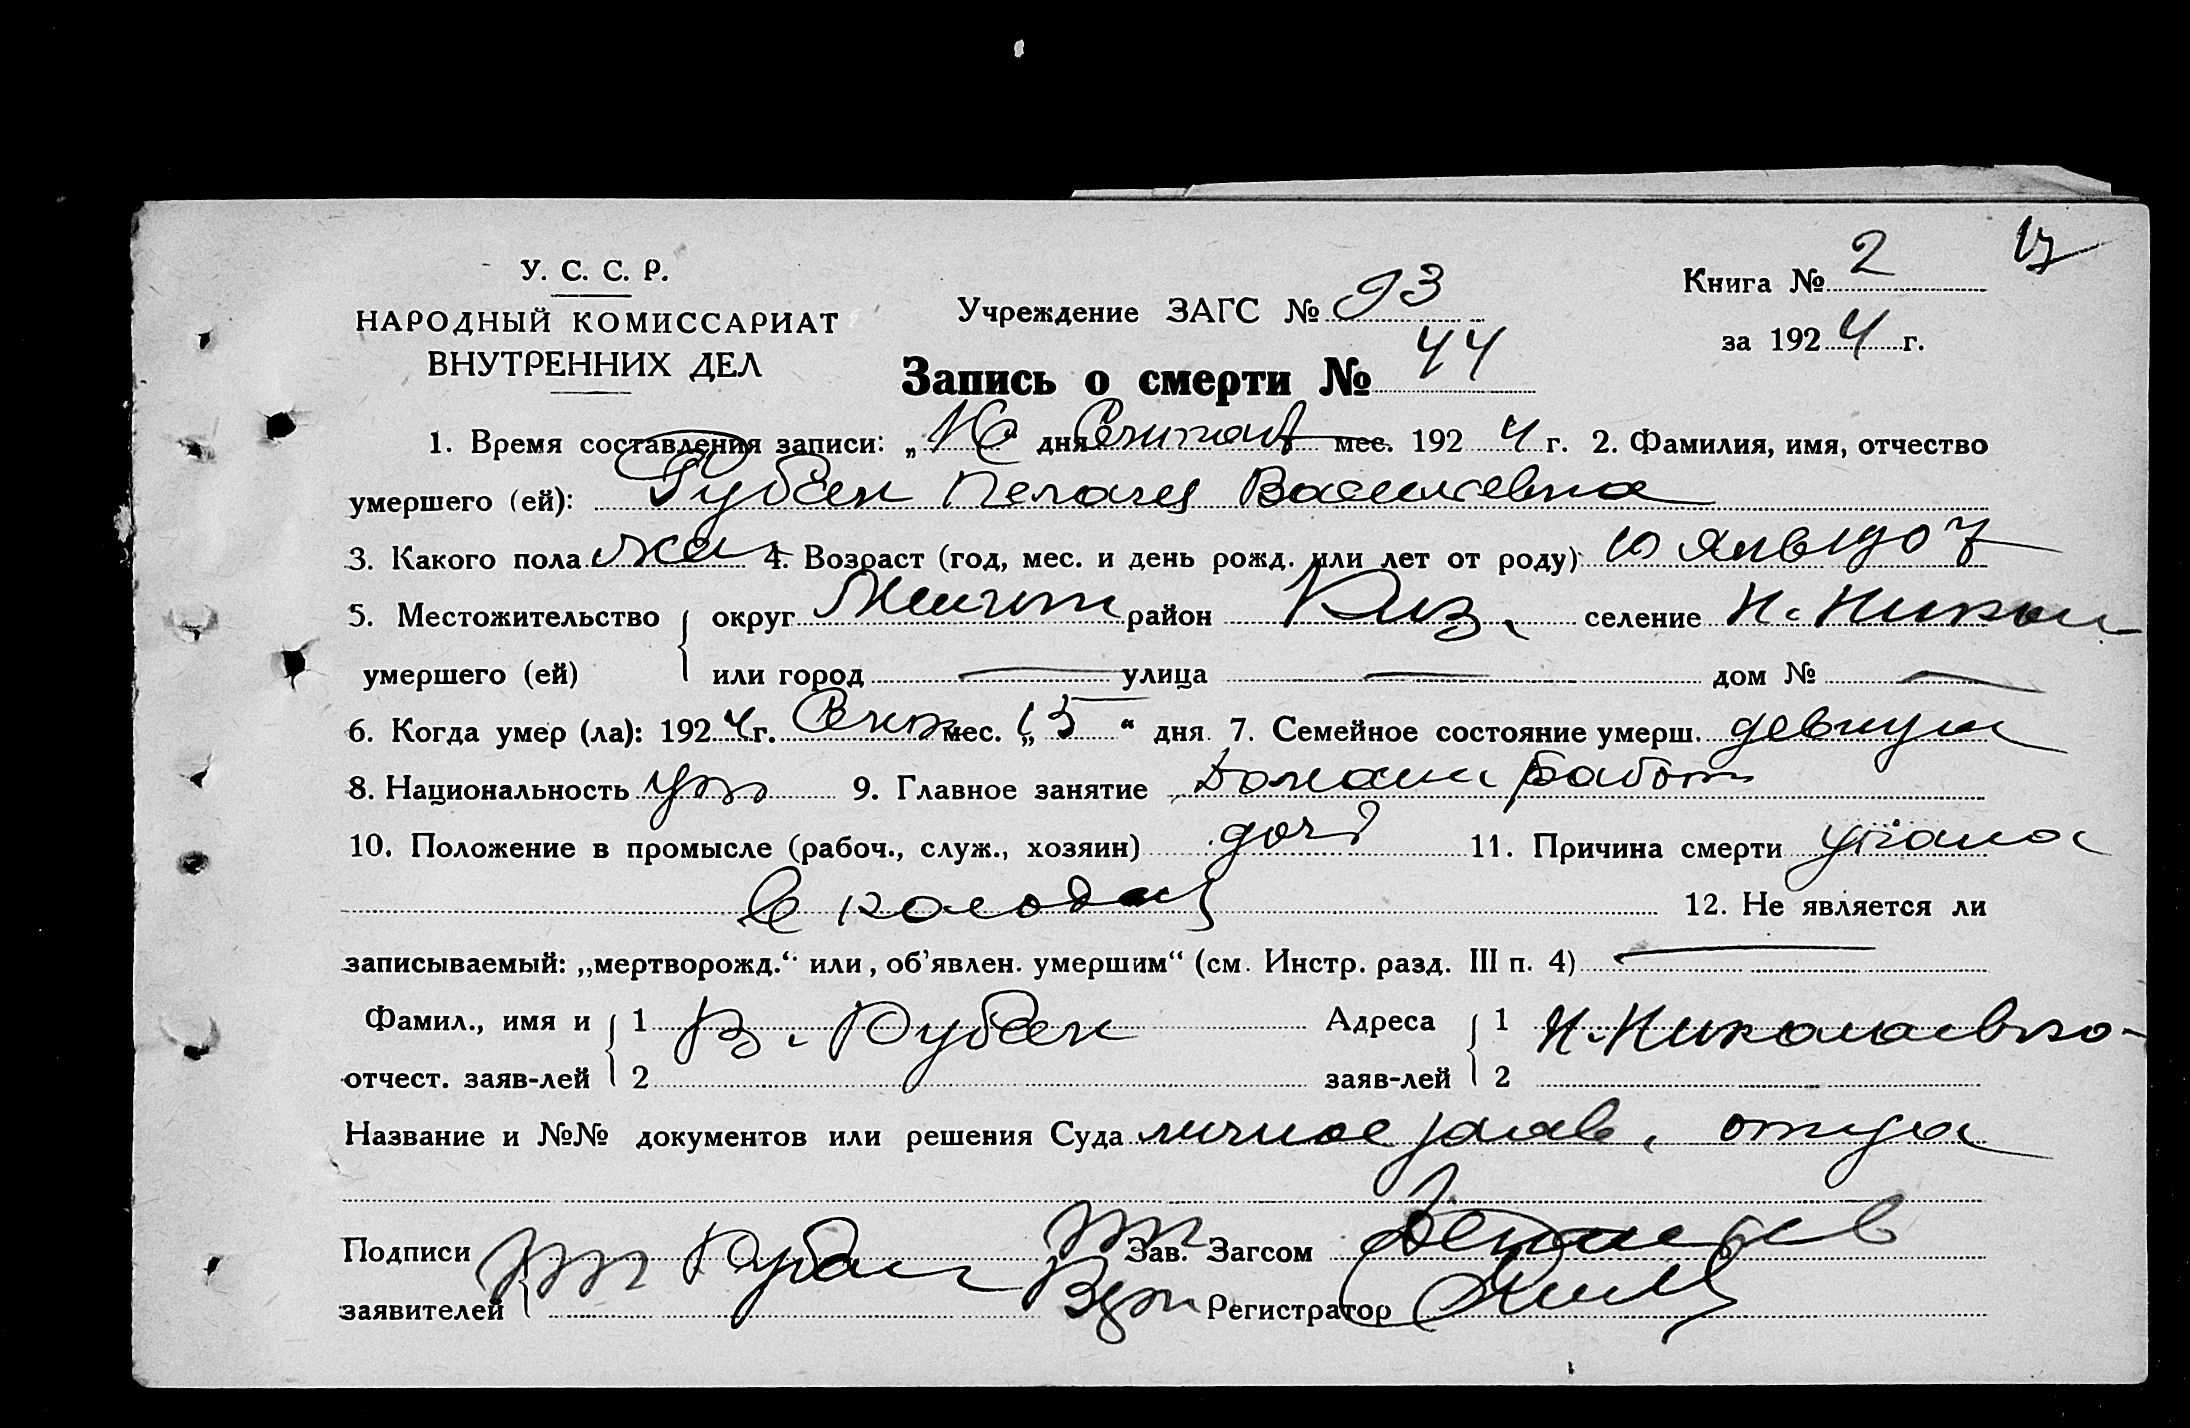 17
У. С. С. Р.
НАРОДНЫЙ КОМИССАРИАТ
ВНУТРЕННИХ ДЕЛ
Учреждение ЗАГС № 93
Книга № 2
за 1924 г.
Запись о смерти № 44
1. Время составления записи: „16 дня Сентяб мес. 1924 г. 2. Фамилия, имя, отчество
умершего (ей): Рубан Пелагея Васильевна
3. Какого пола жен 4. Возраст (год, мес. и день рожд. или лет от роду) 10 Янв 1907
5. Местожительство округ район селение Н. Никол
умершего (ей) или город — улица — дом № —
6. Когда умер (ла): 1924 г. Сент мес. „15“ дня 7. Семейное состояние умерш. девица
8. Национальность укр 9. Главное занятие Домашн работ
10. Положение в промысле (рабоч., служ., хозяин) дочь 11. Причина смерти упала
в колодец 12. Не является ли
записываемый: „мертворожд.“ или „об'явлен. умершим“ (см. Инстр. разд. III п. 4) —
Фамил., имя и 1 В. Рубан Адреса 1 Н. Николаевко
отчест. заяв-лей 2 заяв-лей 2
Название и №№ документов или решения Суда личное заяв. отца
Подписи Рубан Зав. Загсом
заявителей Регистратор